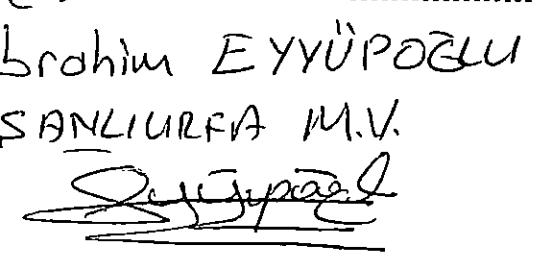 İbrahim EYYÜPOĞLU
ŞANLIURFA M.V.
Eyyüpoğlu